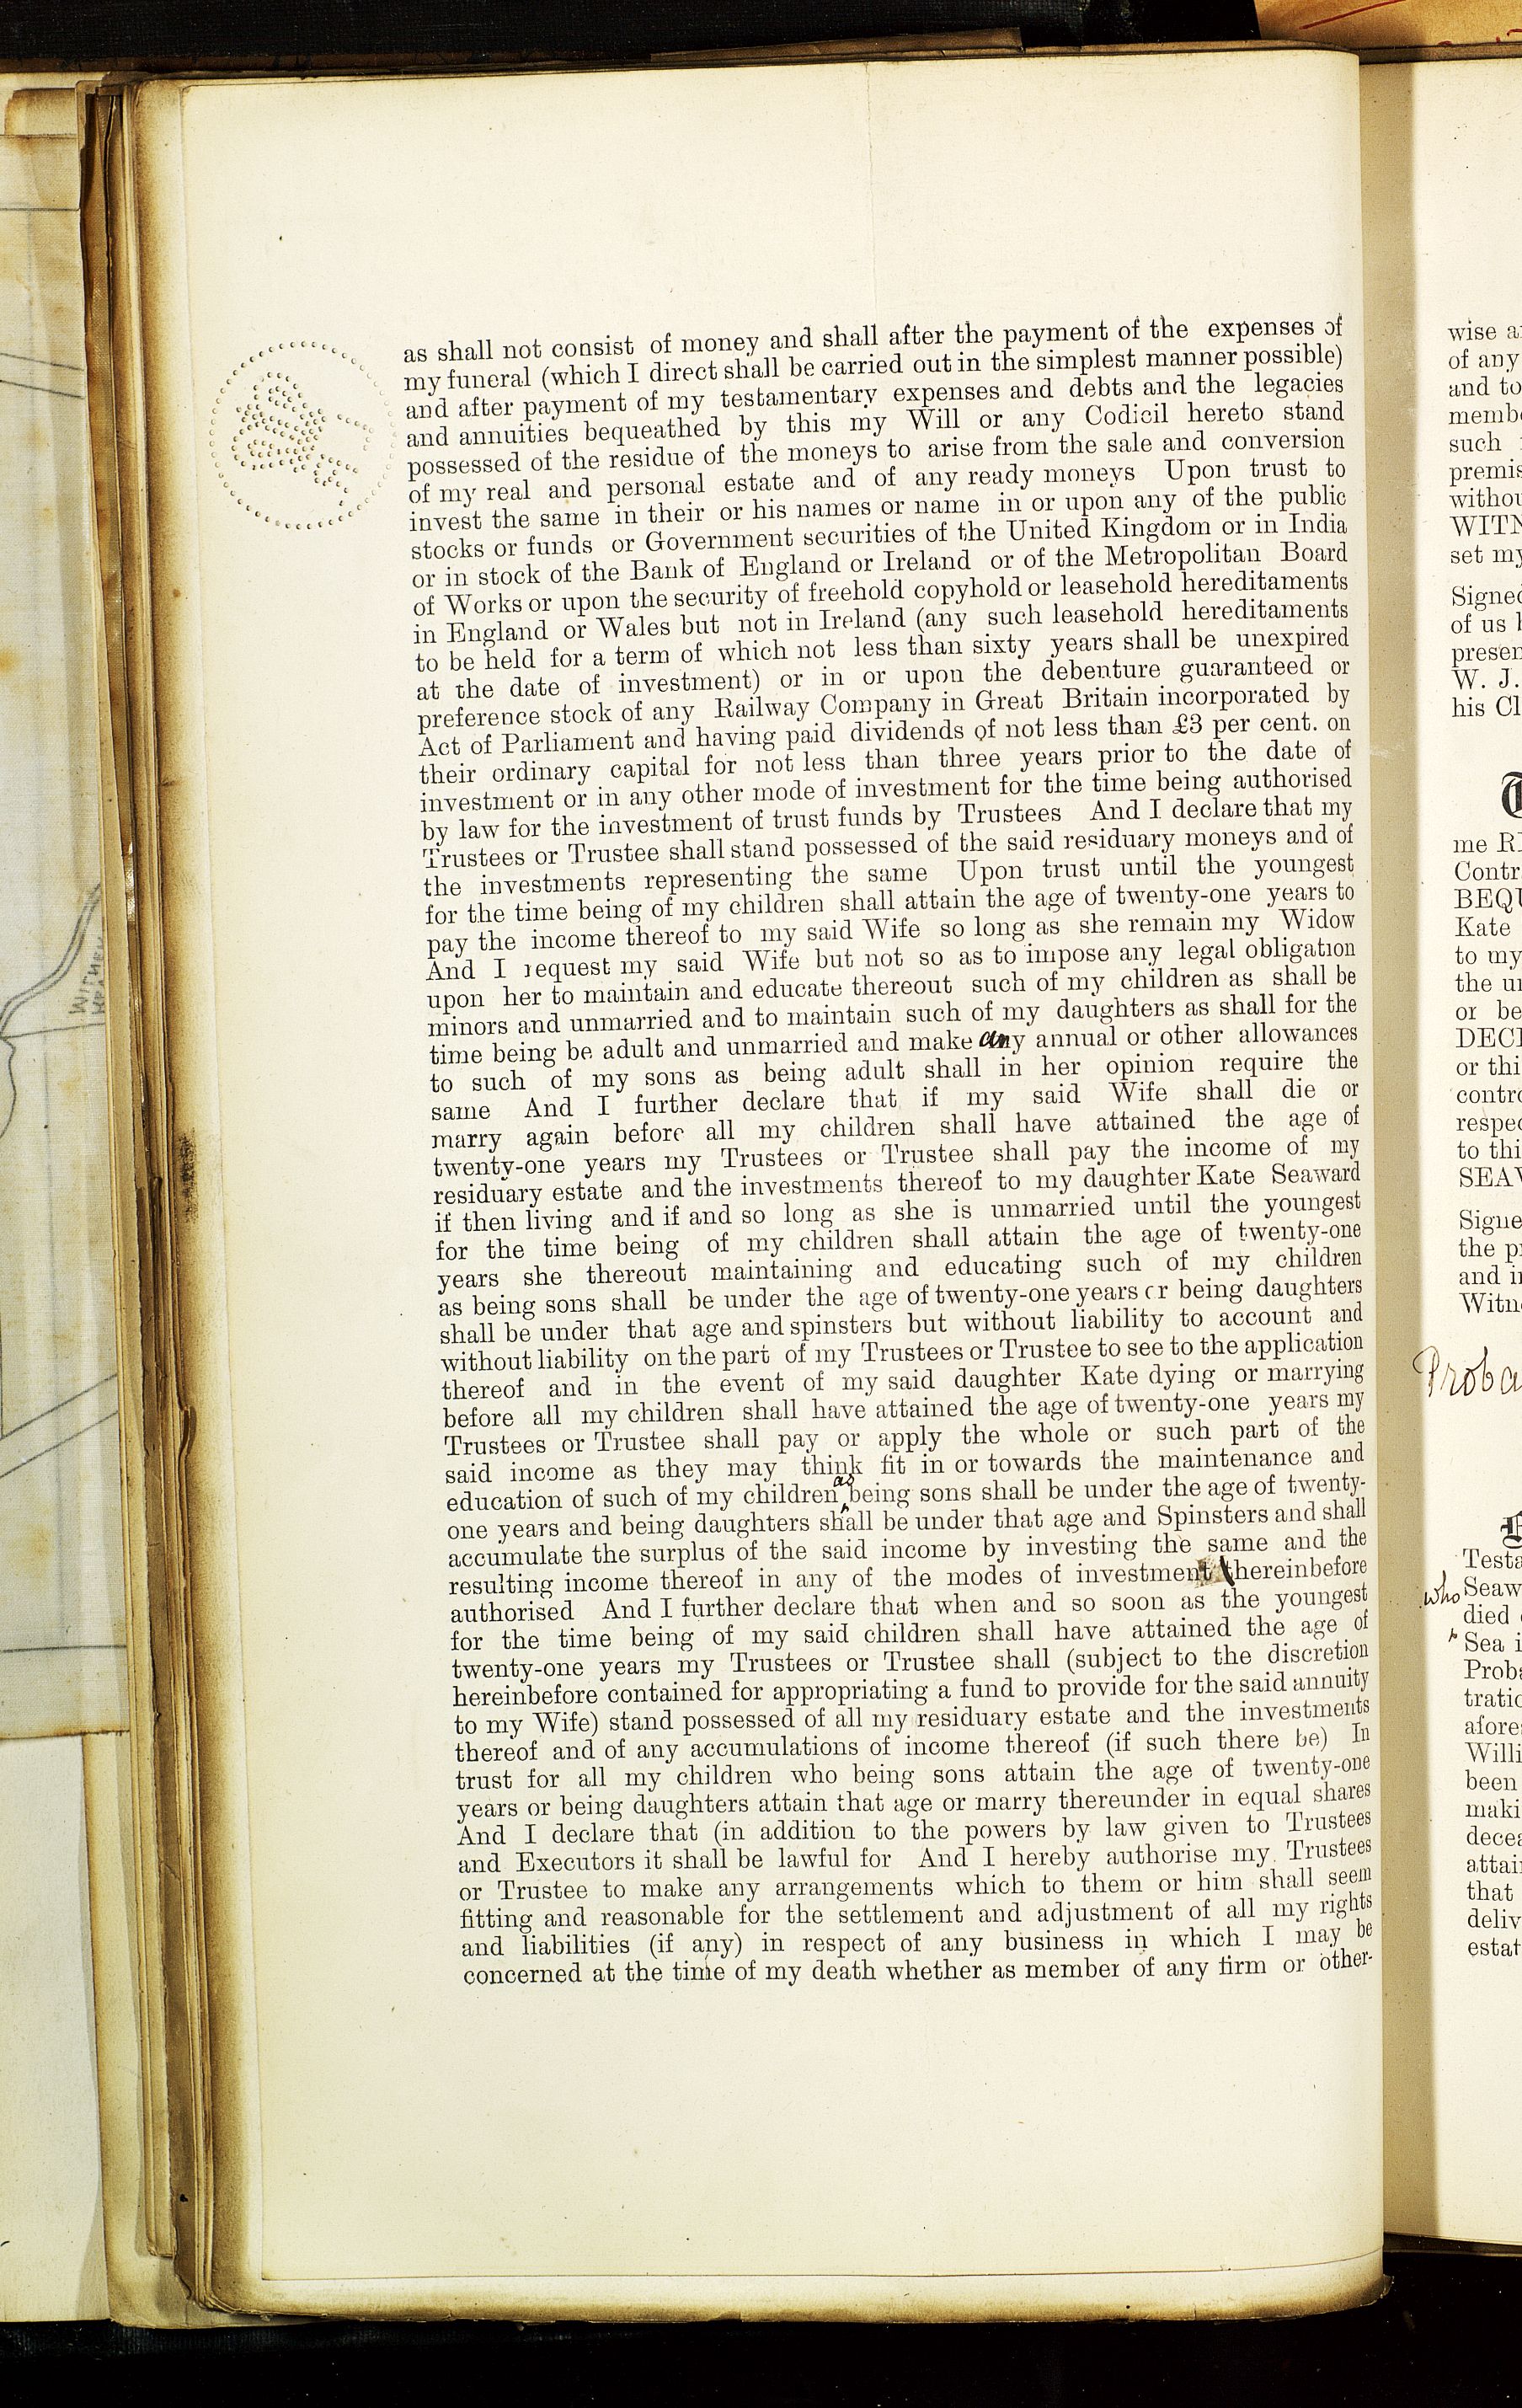 as shall not consist of money and shall after the payment of the expenses of
my funeral (which I direct shall be carried out in the simplest manner possible)
and after payment of my testamentary expenses and debts and the legacies
and annuities bequeathed by this my Will or any Codicil hereto stand
possessed of the residue of the moneys to arise from the sale and conversion
of my real and personal estate and of any ready moneys Upon trust to
invest the same in their or his names or name in or upon any of the public
stocks or funds or Government securities of the United Kingdom or in India
or in stock of the Bank of England or Ireland or of the Metropolitan Board
of Works or upon the security of freehold copyhold or leasehold hereditaments
in England or Wales but not in Ireland (any such leasehold hereditaments
to be held for a term of which not less than sixty years shall be unexpired
at the date of investment) or in or upon the debenture guaranteed or
preference stock of any Railway Company in Great Britain incorporated by
Act of Parliament and having paid dividends of not less than £3 per cent. on
their ordinary capital for not less than three years prior to the date of
investment or in any other mode of investment for the time being authorised
by law for the investment of trust funds by Trustees And I declare that my
Trustees or Trustee shall stand possessed of the said residuary moneys and of
the investments representing the same Upon trust until the youngest
for the time being of my children shall attain the age of twenty-one years to
pay the income thereof to my said Wife so long as she remain my Widow
And I request my said Wife but not so as to impose any legal obligation
upon her to maintain and educate thereout such of my children as shall be
minors and unmarried and to maintain such of my daughters as shall for the
time being be adult and unmarried and make any annual or other allowances
to such of my sons as being adult shall in her opinion require the
same And I further declare that if my said Wife shall die or
marry again before all my children shall have attained the age of
twenty-one years my Trustees or Trustee shall pay the income of my
residuary estate and the investments thereof to my daughter Kate Seaward
if then living and if and so long as she is unmarried until the youngest
for the time being of my children shall attain the age of twenty-one
years she thereout maintaining and educating such of my children
as being sons shall be under the age of twenty-one years or being daughters
shall be under that age and spinsters but without liability to account and
without liability on the part of my Trustees or Trustee to see to the application
thereof and in the event of my said daughter Kate dying or marrying
before all my children shall have attained the age of twenty-one years my
Trustees or Trustee shall pay or apply the whole or such part of the
said income as they may think fit in or towards the maintenance and
education of such of my children as being sons shall be under the age of twenty-
one years and being daughters shall be under that age and Spinsters and shall
accumulate the surplus of the said income by investing the same and the
resulting income thereof in any of the modes of investment hereinbefore
authorised And I further declare that when and so soon as the youngest
for the time being of my said children shall have attained the age of
twenty-one years my Trustees or Trustee shall (subject to the discretion
hereinbefore contained for appropriating a fund to provide for the said annuity
to my Wife) stand possessed of all my residuary estate and the investments
thereof and of any accumulations of income thereof (if such there be) In
trust for all my children who being sons attain the age of twenty-one
years or being daughters attain that age or marry thereunder in equal shares
And I declare that (in addition to the powers by law given to Trustees
and Executors it shall be lawful for And I hereby authorise my Trustees
or Trustee to make any arrangements which to them or him shall seem
fitting and reasonable for the settlement and adjustment of all my rights
and liabilities (if any) in respect of any business in which I may be
concerned at the time of my death whether as member of any firm or other-
wise
of any
and to
such
WITN
set my
of us
W. J.
his Cl
me
Kate
to my
or be
or thi
to thi
the
and
who
died
Sea
been
that